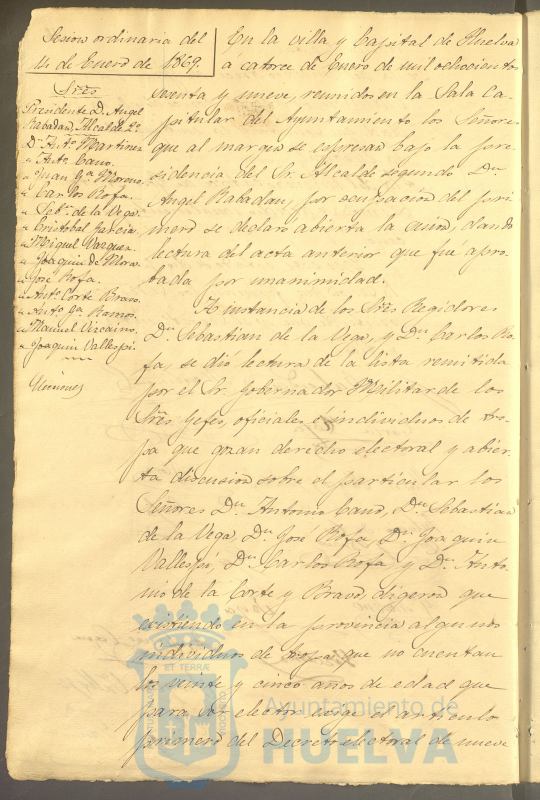 Sesion ordinaria del
14 de Enero de 1869.
Sres
Presidente D. Angel
Rabadan, Alcalde 2º
D. Antº Martinez
" Antº Cano.
" Juan Gª Moreno
" Carlos Rofa.
" Sebn. de la Vega
" Cristobal Garcia
" Miguel Vazquez
" Joaquin de Mora
" José Rofa.
" Antº Corte Bravo.
" Antº Gª Ramos.
" Manuel Vizcaino.
" Joaquin Vallespi.
Elecciones
En la villa y Capital de Huelva
a catorce de Enero de mil ochociento
sesenta y nueve, reunidos en la Sala Ca-
pitular del Ayuntamiento los Señore
que al margen se espresan bajo la pre-
sidencia del Sr. Alcalde segundo Dn
Angel Rabadan, por ocupacion del pri-
mero se declaró abierta la sesion, dando
lectura del acta anterior que fué apro-
bada por unanimidad.
A instancia de los Sres Regidores
Dn Sebastian de la Vega, y Dn Carlos Ro-
fa, se dió lectura de la lista remitida
por el Sr Gobernador Militar de los
Sres Gefes, oficiales é individuos de tro-
pa que gozan derecho electoral y abier-
ta discusion sobre el particular los
Señores Dn Antonio Cano, Dn Sebastian
de la Vega, Dn José Rofa, Dn Joaquin
Vallespi, Dn Carlos Rofa y Dn Anto-
nio de la Corte y Bravo, digeron que
existiendo en la provincia algunos
individuos de tropa que no cuentan
los veinte y cinco años de edad que
para ser elector exige el articulo
primero del Decreto electoral de nueve
ET TERRÆ
Ayuntamiento de
HUELVA